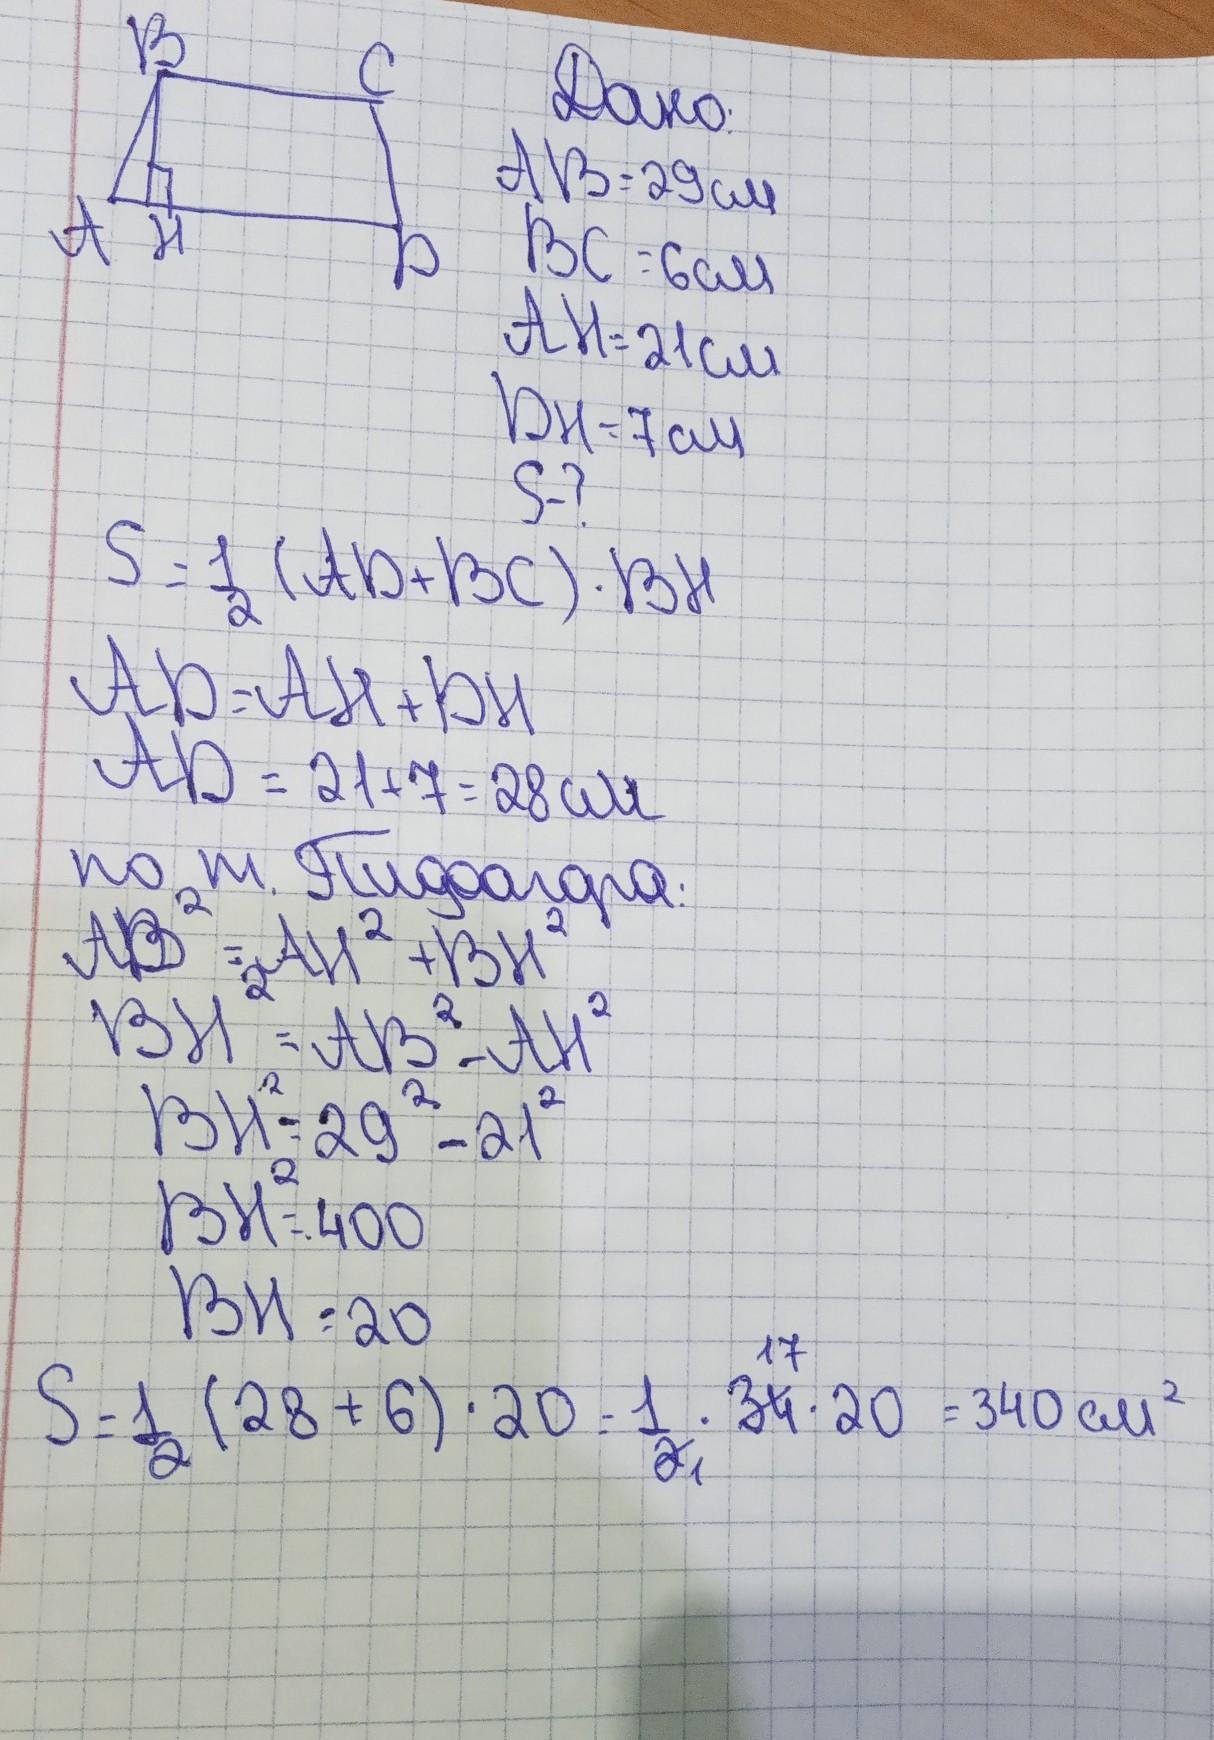 B
C
A H
D
Дано:
AB=29см
BC=6см
AH=21см
DH=7см
S-?
S=1/2(AD+BC)·BH
AD=AH+DH
AD=21+7=28см
по т. Пифагора:
AB²=AH²+BH²
BH²=AB²-AH²
BH²=29²-21²
BH²=400
BH=20
17
S=1/2(28+6)·20=1/2·34·20=340см²
1